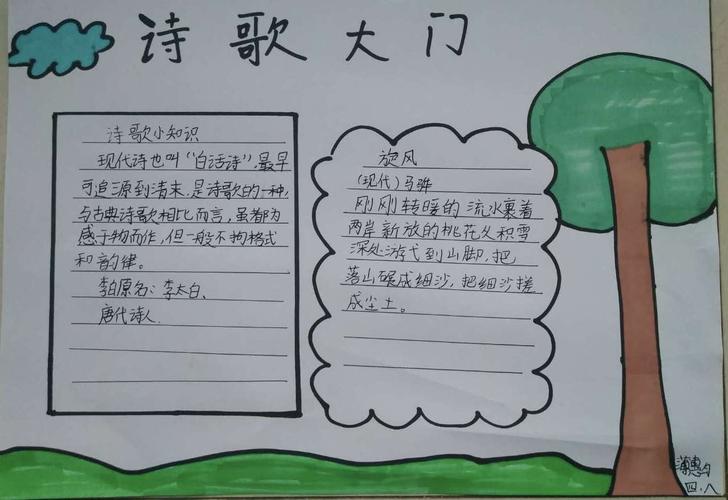 诗歌大门
诗歌小知识
现代诗也叫“白话诗”,最早
可追源到清末,是诗歌的一种,
与古典诗歌相比而言,虽都为
感于物而作,但一般不拘格式
和韵律。
李白原名:李太白、
唐代诗人.
旋风
(现代)马骅
刚刚转暖的流水裹着
两岸新放的桃花从积雪
深处游弋到山脚,把
落山碾成细沙,把细沙搓
成尘土。
蒲惠
四.八